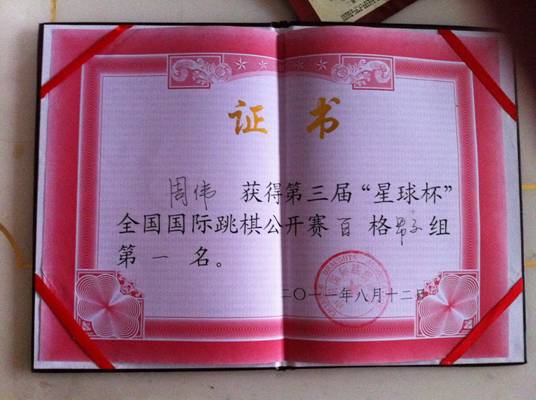 证书
周伟 获得第三届“星球杯”
全国国际跳棋公开赛百格男子组
第一名。
二〇一一年八月十二日